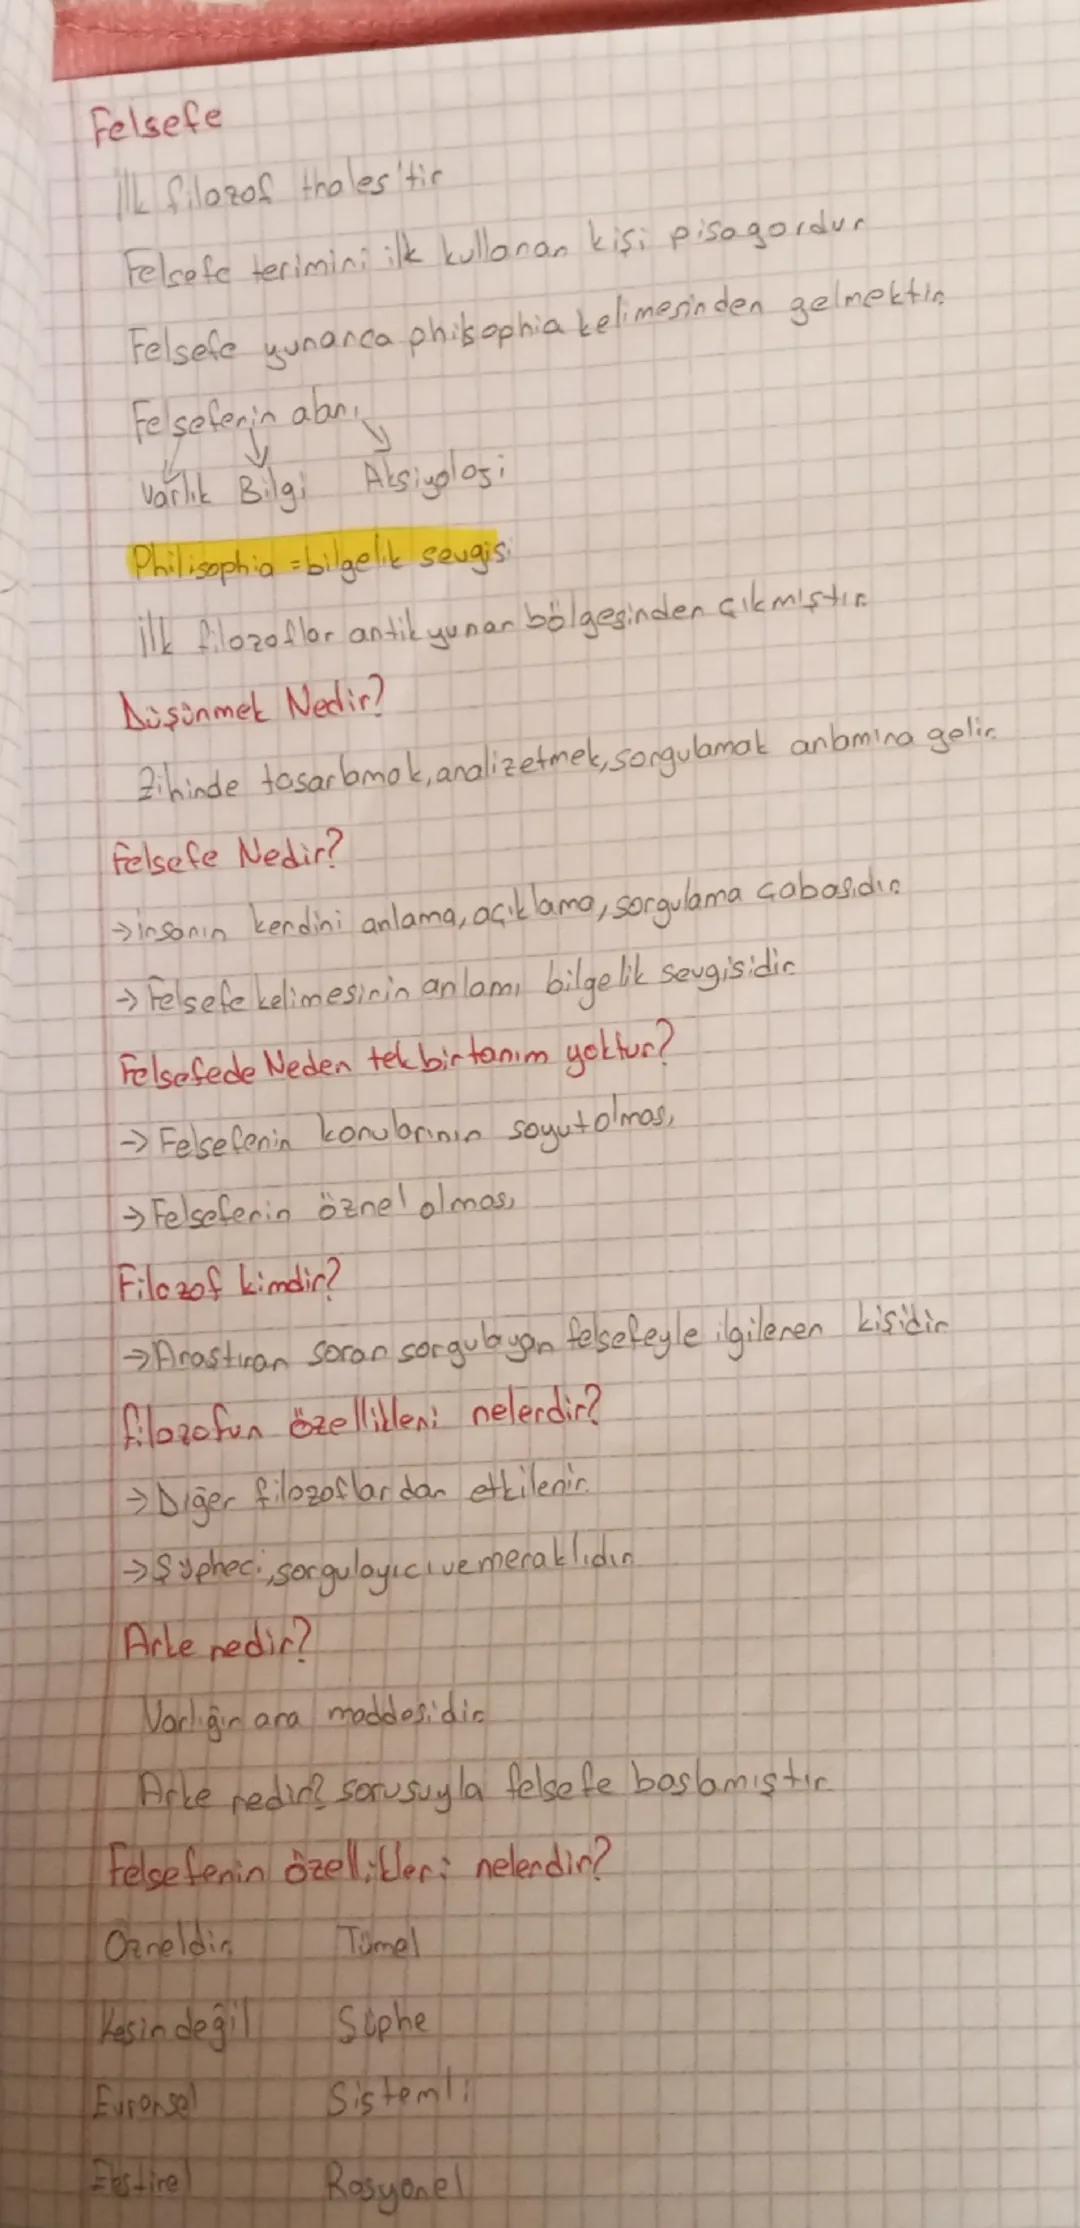 Felsefe
İlk filozof thales'tir
Felsefe terimini ilk kullanan kişi pisagordur
Felsefe yunanca philsophia kelimesinden gelmektir
Felsefenin alanı
Varlık Bilgi Aksiyoloji
Philisophia = bilgelik sevgisi
İlk filozoflar antik yunan bölgesinden çıkmıştır
Düşünmek Nedir?
Zihinde tasarlamak, analiz etmek, sorgulamak anlamına gelir
Felsefe Nedir?
→ insanın kendini anlama, açıklama, sorgulama çabasıdır
→ Felsefe kelimesinin anlamı bilgelik sevgisidir
Felsefede Neden tek bir tanım yoktur?
→ Felsefenin konularının soyut olması
→ Felsefenin öznel olması
Filozof kimdir?
→ Araştıran soran sorgulayan felsefeyle ilgilenen kişidir
filozofun özellikleri nelerdir?
→ Diğer filozoflardan etkilenir
→ Şüpheci, sorgulayıcı ve meraklıdır
Arke nedir?
Varlığın ana maddesidir
Arke nedir? sorusuyla felsefe başlamıştır
Felsefenin özellikleri nelerdir?
Özneldir Tümel
Kesin değil Şüphe
Evrensel Sistemli
Eleştirel Rasyonel